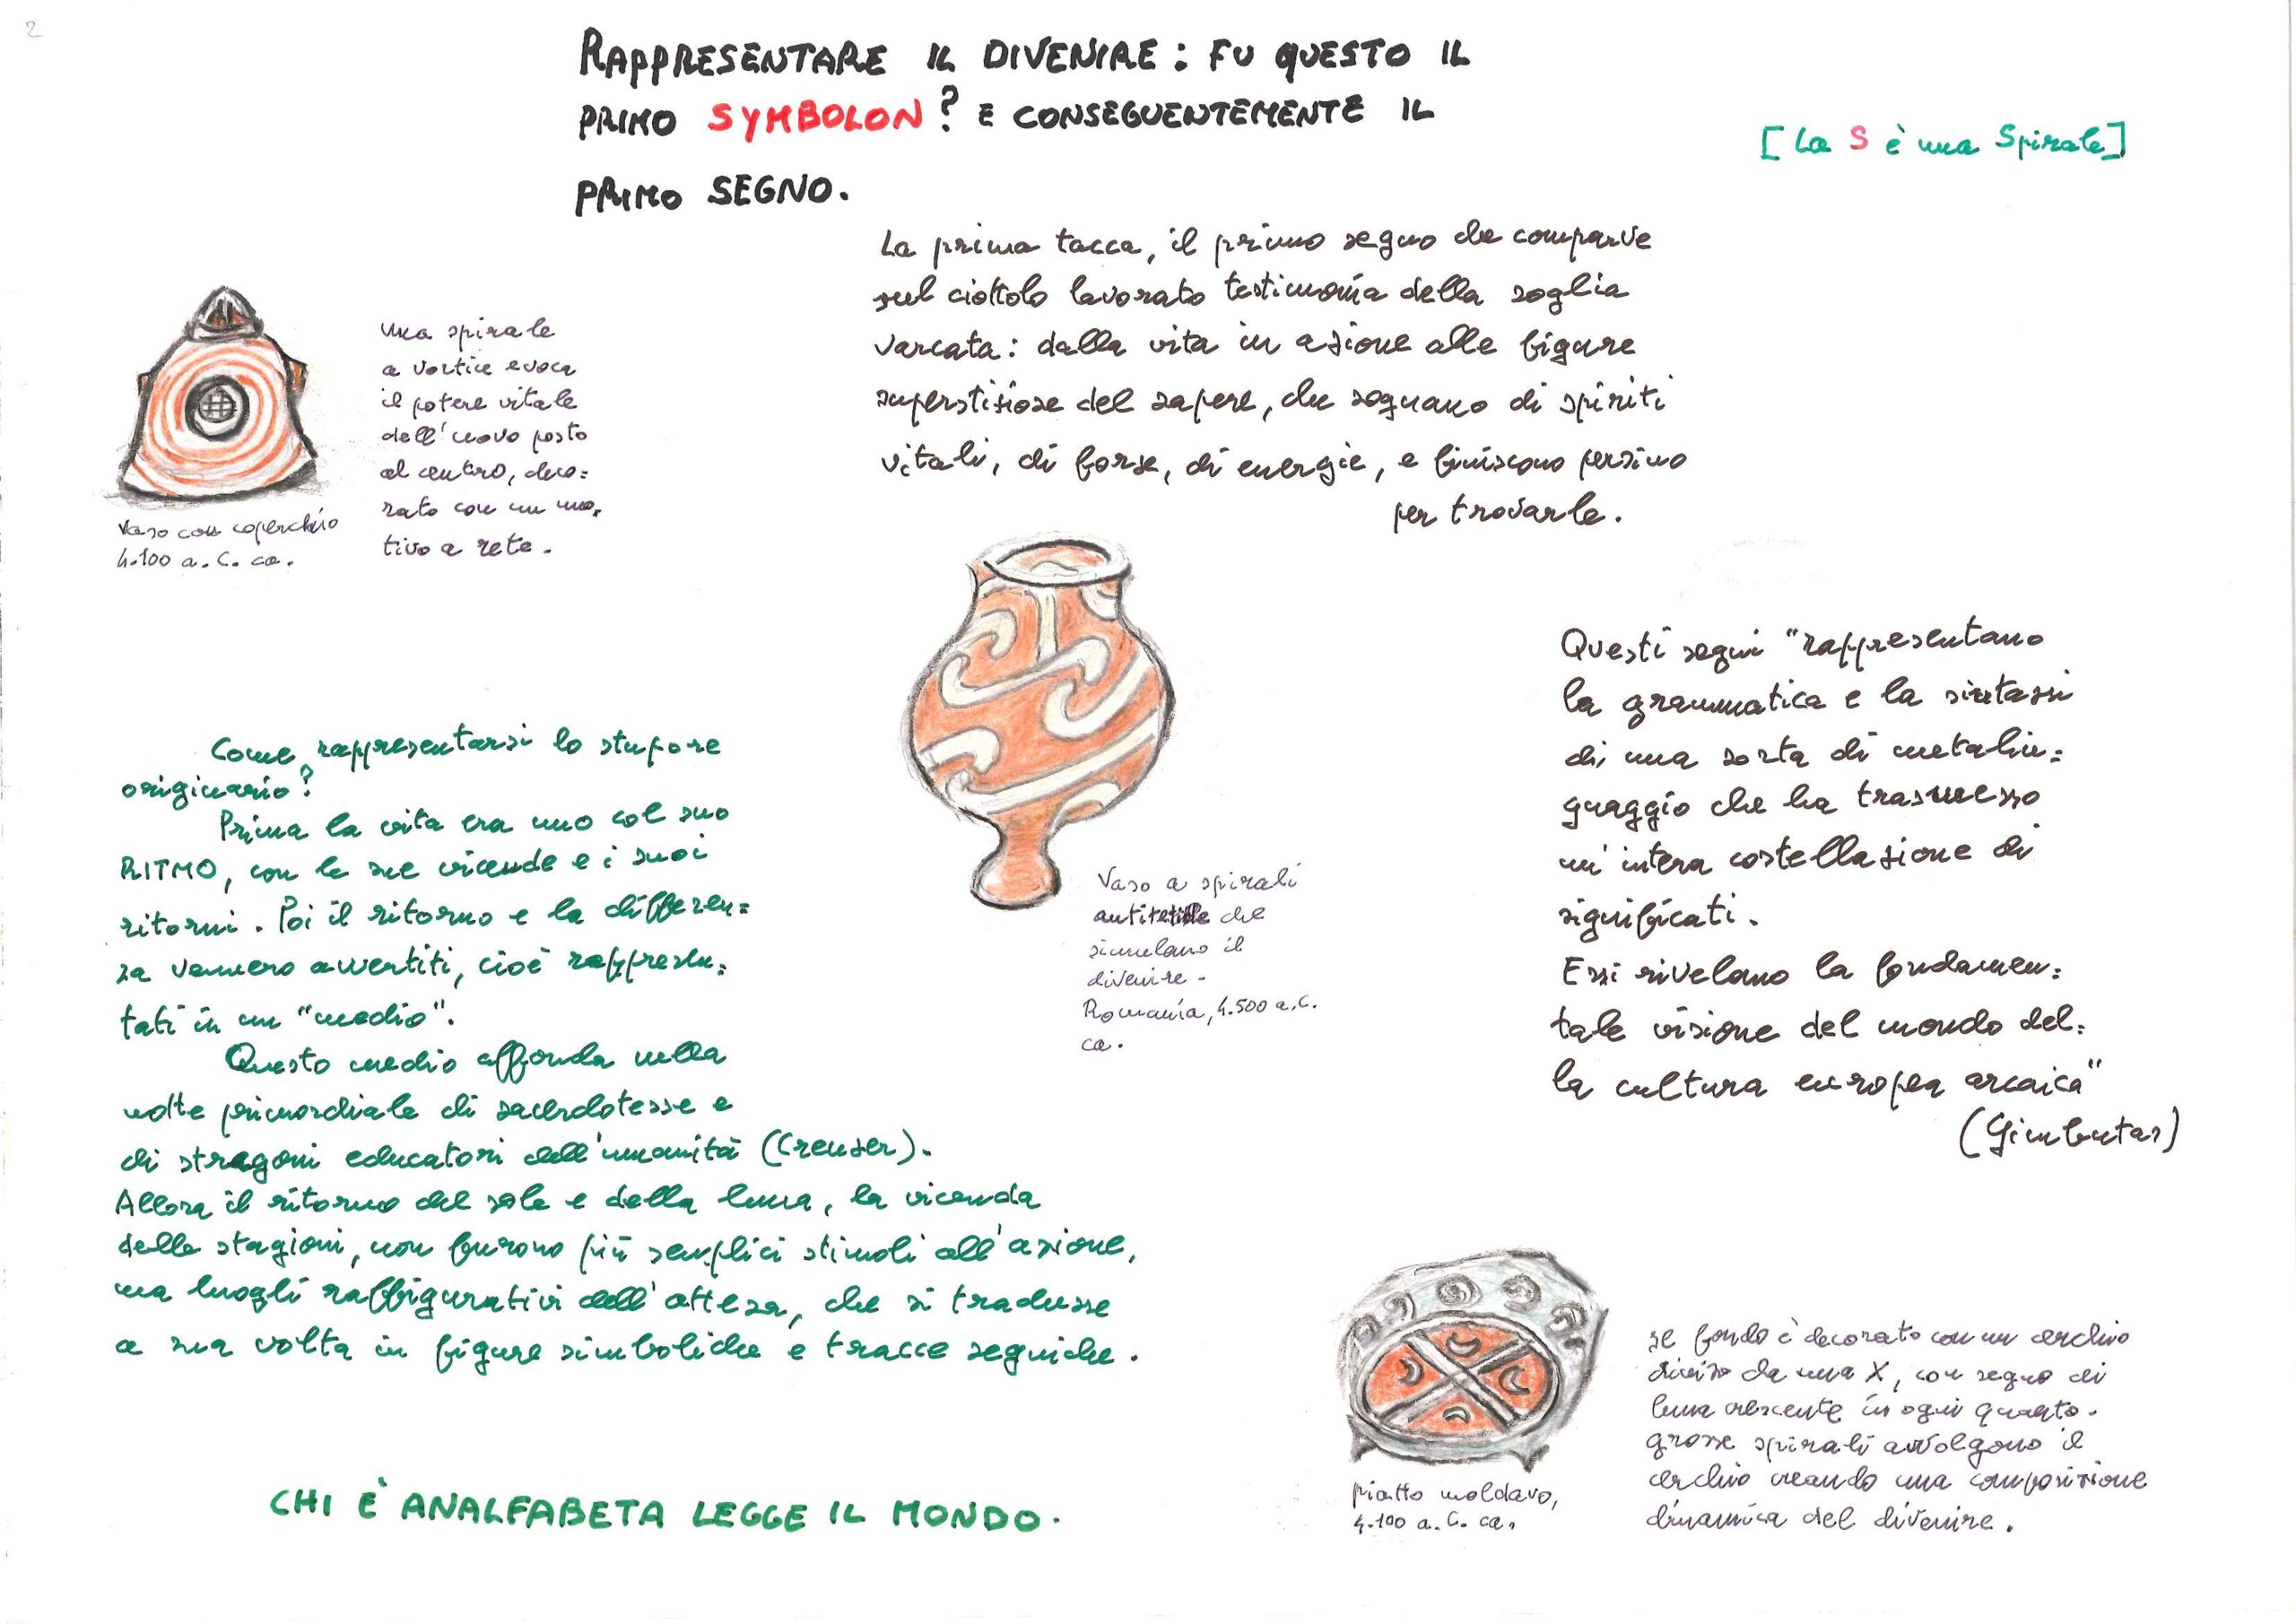 2
RAPPRESENTARE IL DIVENIRE: FU QUESTO IL
PRIMO SYMBOLON? E CONSEGUENTEMENTE IL
PRIMO SEGNO.
[La S è una Spirale]
La prima tacca, il primo segno che comparve
sul ciottolo lavorato testimonia della soglia
varcata: dalla vita in azione alle figure
superstiziose del sapere, che sognano di spiriti
vitali, di forze, di energie, e finiscono persino
per trovarle.
Una spirale
a vortice evoca
il potere vitale
dell'uovo posto
al centro, deco=
rato con un mo,
tivo a rete.
Vaso con coperchio
4.100 a.C. ca.
Vaso a spirali
antitetiche che
simulano il
divenire.
Romania, 4.500 a.C.
ca.
Questi segni "rappresentano
la grammatica e la sintassi
di una sorta di metalin=
guaggio che ha trasmesso
un'intera costellazione di
significati.
Essi rivelano la fondamen=
tale visione del mondo del=
la cultura europea arcaica"
(Gimbutas)
Come rappresentarsi lo stupore
originario?
Prima la vita era uno col suo
RITMO, con le sue vicende e i suoi
ritorni. Poi il ritorno e la differen=
za vennero avvertiti, cioè rappresen=
tati in un "medio".
Questo medio affonda nella
notte primordiale di sacerdotesse e
di stregoni educatori dell'umanità (Creuzer).
Allora il ritorno del sole e della luna, la vicenda
delle stagioni, non furono più semplici stimoli all'azione,
ma luoghi raffigurativi dell'attesa, che si tradusse
a sua volta in figure simboliche e tracce segniche.
CHI È ANALFABETA LEGGE IL MONDO.
piatto moldavo,
4.100 a.C. ca.
Il fondo è decorato con un cerchio
diviso da una X, con segno di
luna crescente in ogni quarto.
grosse spirali avvolgono il
cerchio creando una composizione
dinamica del divenire.